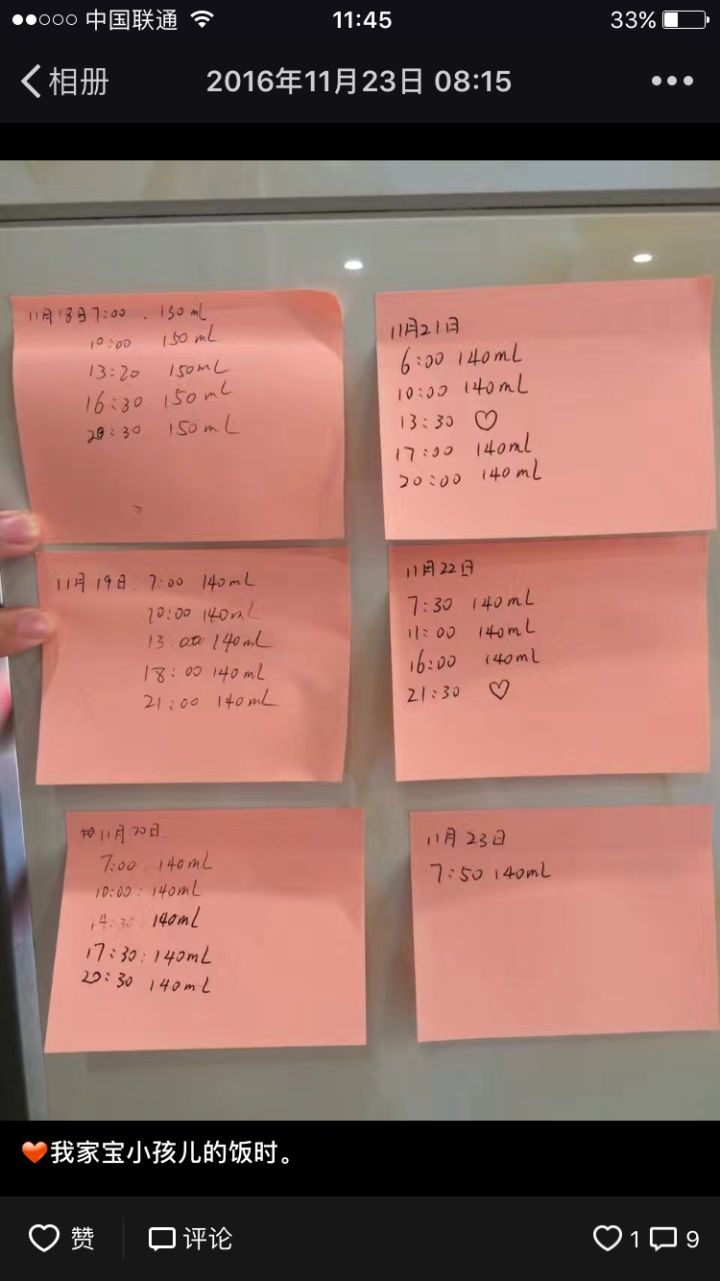 中国联通 11:45 33%
相册 2016年11月23日 08:15
11月18日 7:00 . 130mL
10:00 150mL
13:20 150mL
16:30 150mL
20:30 150mL
11月19日 7:00 140mL
10:00 140mL
13:00 140mL
18:00 140mL
21:00 140mL
11月20日.
7:00 140mL
10:00: 140mL
14:30: 140mL
17:30: 140mL
20:30 140mL
11月21日
6:00 140mL
10:00 140mL
13:30 ♡
17:00 140mL
20:00 140mL
11月22日
7:30 140mL
11:00 140mL
16:00 140mL
21:30 ♡
11月23日
7:50 140mL
❤️我家宝小孩儿的饭时。
赞 评论 1 9